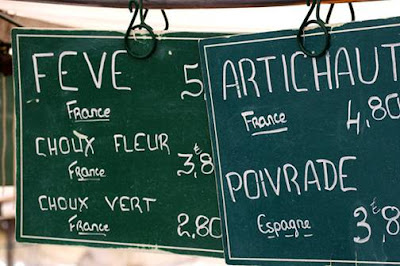 FEVE 5
France
CHOUX FLEUR 3,8
France
CHOUX VERT 2.80
France
ARTICHAUT
France 4,80
POIVRADE
Espagne 3€,8